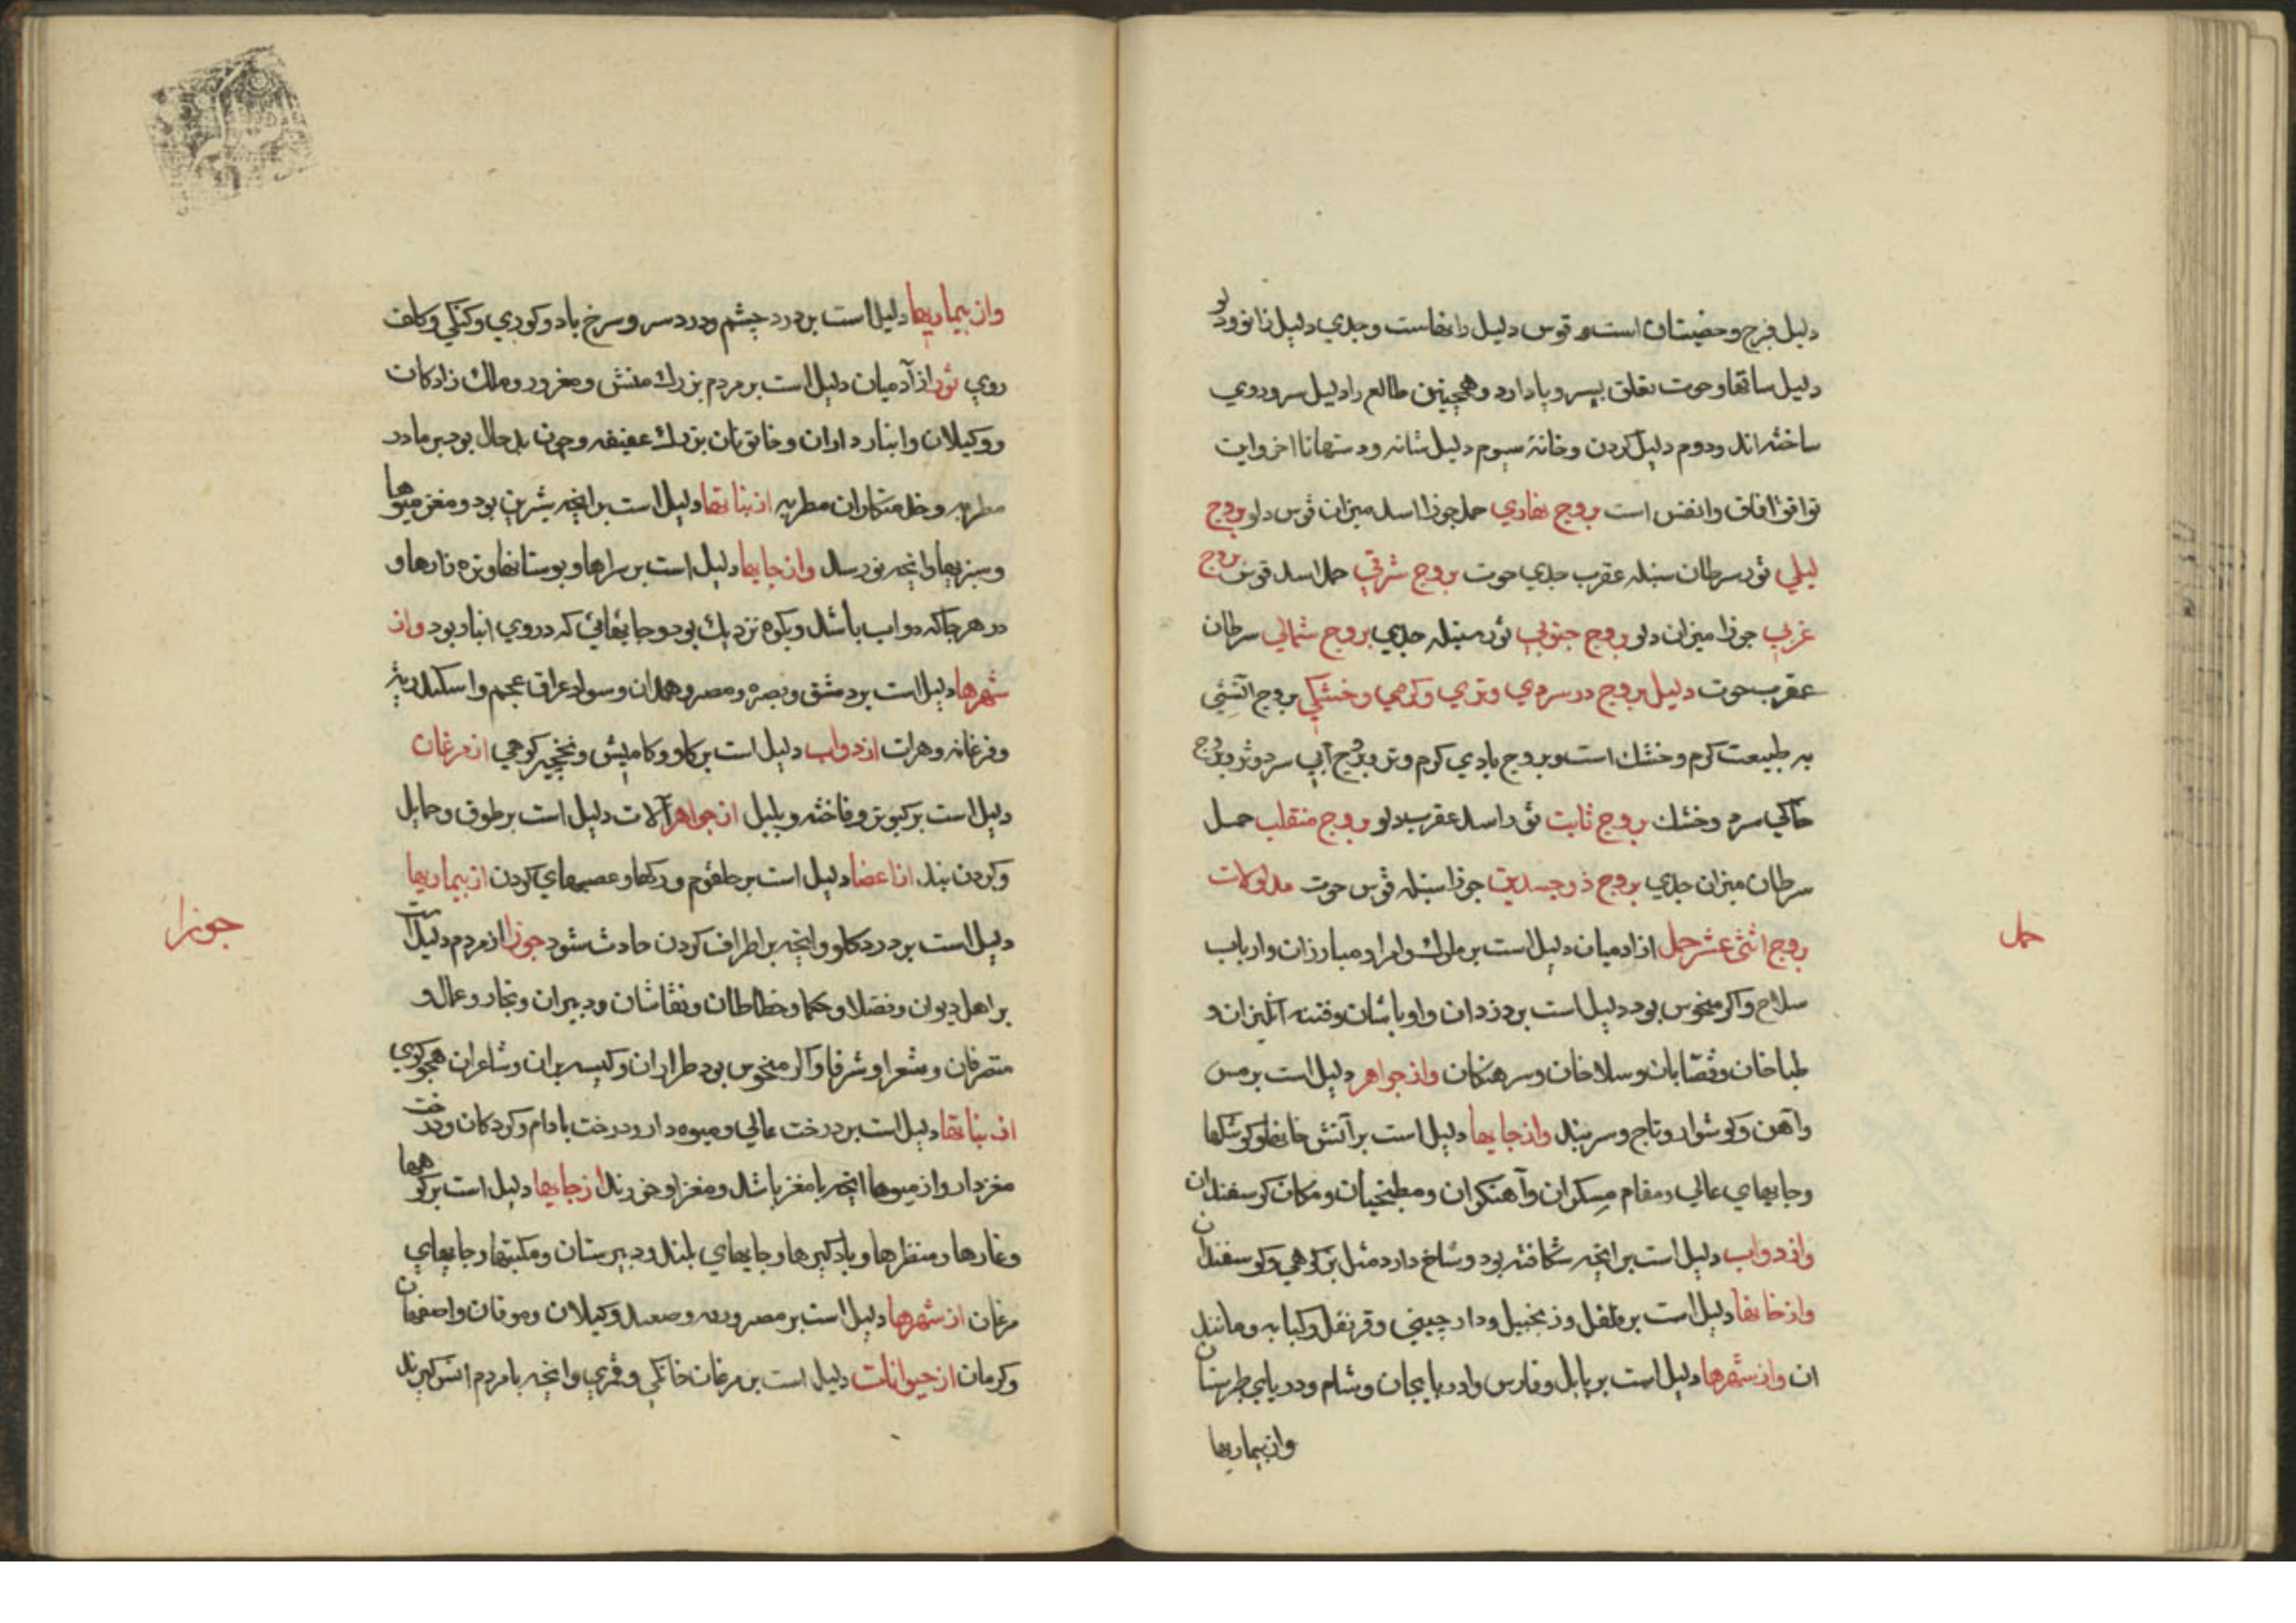 دلیل فرج و خصیتان است و قوس دلیل رانهاست و جدي دلیل زانو و دلو
دلیل ساقها و حوت تعلق بپسر و پا دارد و همچنین طالع را دلیل سر و روي
ساخته اند و دوم دلیل کردن و خانه سیوم دلیل شانه و دستها تا اخر و این
توافق افاق و انفس است بروج نهاري حمل جوزا اسد میزان قوس دلو بروج
لیلي ثور سرطان سنبله عقرب جدي حوت بروج شرقي حمل اسد قوس بروج
غربي جوزا میزان دلو بروج جنوبي ثور سنبله جدي بروج شمالي سرطان
عقرب حوت دلیل بروج در سردي و تري و کرمي و خشکي بروج آتشي
به طبیعت کرم و خشك است و بروج بادي کرم و تر و بروج آبي سرد و تر و بروج
خاکي سرد و خشك بروج ثابت ثور اسد عقرب دلو بروج منقلب حمل
سرطان میزان جدي بروج ذو جسدین جوزا سنبله قوس حوت مدلولات
بروج اثنی عشر حمل از ادمیان دلیل است بر ملوك و امرا و مبارزان و ارباب
سلاح و اکر منحوس بود دلیل است بر دزدان و اوباشان و فتنه انکیزان و
طباخان و قصابان و سلاخان و سرهنکان و از جواهر دلیل است بر مس
و آهن و کوشوار و تاج و سربند و از جایها دلیل است بر آتش خانها و کوشکها
و جایهاي عالي و مقام مسکران و آهنکران و مطبخیان و مکان کوسفندان
و از دواب دلیل است بر انچه شکافته بود و شاخ دارد مثل بز کوهي و کوسفندان
و از خانها دلیل است بر فلفل و زنجبیل و دارچیني و قرنفل و کبابه و مانند
ان و از شهرها دلیل است بر بابل و فارس و ادربایجان و شام و دریاي طبرستان
و از بیماریها
حمل
و از بیماریها دلیل است بر درد چشم و درد سر و سرخ باد و کوري و کنکي و کلف
روي ثور از آدمیان دلیل است بر مردم بزرك منش و مغرور و ملك زادکان
و وکیلان و انبارداران و خاتونان بزرك عفیفه و چون بدحال بود بر مادر
مطربه و خدمتکاران مطربه از نباتها دلیل است بر انچه شیرین بود و مغز میوها
و سبزیها و انچه نو رسد و از جایها دلیل است بر سراها و بوستانها و
در هر جا که دواب باشد و بکوه نزدیك بود و جایهائي که در وي انبار بود و از
شهرها دلیل است بر دمشق و بصره و مصر و همدان و سواد عراق عجم و اسکندریه
و فرغانه و هرات از دواب دلیل است بر کاو و کامیش و نخچیر کوهي از مرغان
دلیل است بر کبوتر و فاخته و بلبل از جواهر آلات دلیل است بر طوق و حمایل
و کردن بند از اعضا دلیل است بر حلقوم و رکها و عصبهاي کردن از بیماریها
دلیل است بر درد کلو و انچه بر اطراف کردن حادث شود جوزا از مردم دلیل است
بر اهل دیوان و فضلا و حکما و خطاطان و نقاشان و دبیران و تجار و عمال و
متصرفان و شعرا و شرفا و اکر منحوس بود طراران و کیسه بران و شاعران هجو کوي
از نباتها دلیل است بر درخت عالي و میوه دار و درخت بادام و کردکان و درخت
مغزدار و از میوها انچه با مغز باشد و مغز او خورند از جایها دلیل است بر کوهها
و غارها و منظرها و بادکیرها و جایهاي بلند و دبیرستان و مکتبها و جایهاي
مرغان از شهرها دلیل است بر مصر و و کیلان و موقان و اصفهان
و کرمان از حیوانات دلیل است بر مرغان خانکي و قمري و انچه با مردم انس کیرند
جوزا